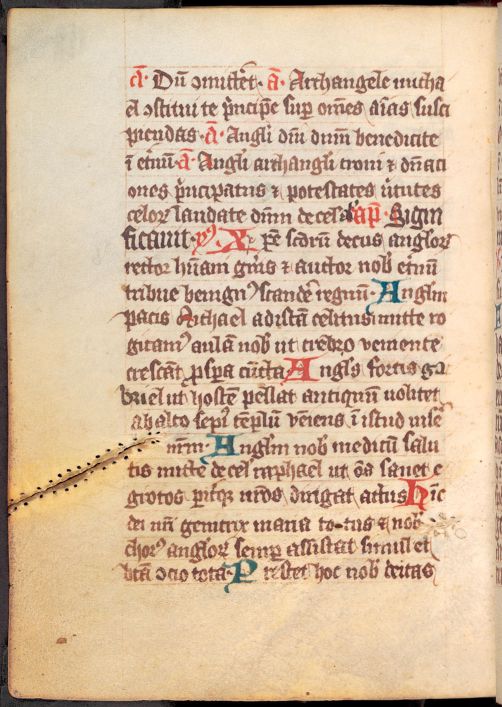 a. Dū ↄmittēt. a. Archangele micha
el ↄstitui te pͥncipē sup om̄es aīas susci
piendas. a. Angͥli dn̄i dn̄m benedicite
ī etn̄ū. a. Angͥli archangͥli troni ⁊ dn̄aci
ones pͥncipatus ⁊ potestates ūtutes
celoꝝ laudate dn̄m de celͥ. ap̄. Sigͥni
ficauit. ps̄. Xp̄e scōrū decus angloꝝ
rector hūam gn̄is ⁊ auctor nob etn̄ū
tribue benignꝰ scande regnū. Anglm
pacis Michael ad istā celitus mitte ro
gitamꝰ aulā nob ut crebro veniente
crescāt pͥspa cūcta. Angls fortis ga
briel ut hostē pellat antiquū uolitet
ab alto sepiꝰ tēplū veniens ī istud uise
n̄m. Anglm nob medicū salu
tis mitte de cel raphael ut om̄s sanet e
grotos pit̄qꝫ nr̄os dirigat actus Hic
dei nr̄i genitrix maria to-tus ⁊ nob
chorꝰ angloꝝ semp assistat simul et
btā ↄcio tota. Prestet hoc nob deitas